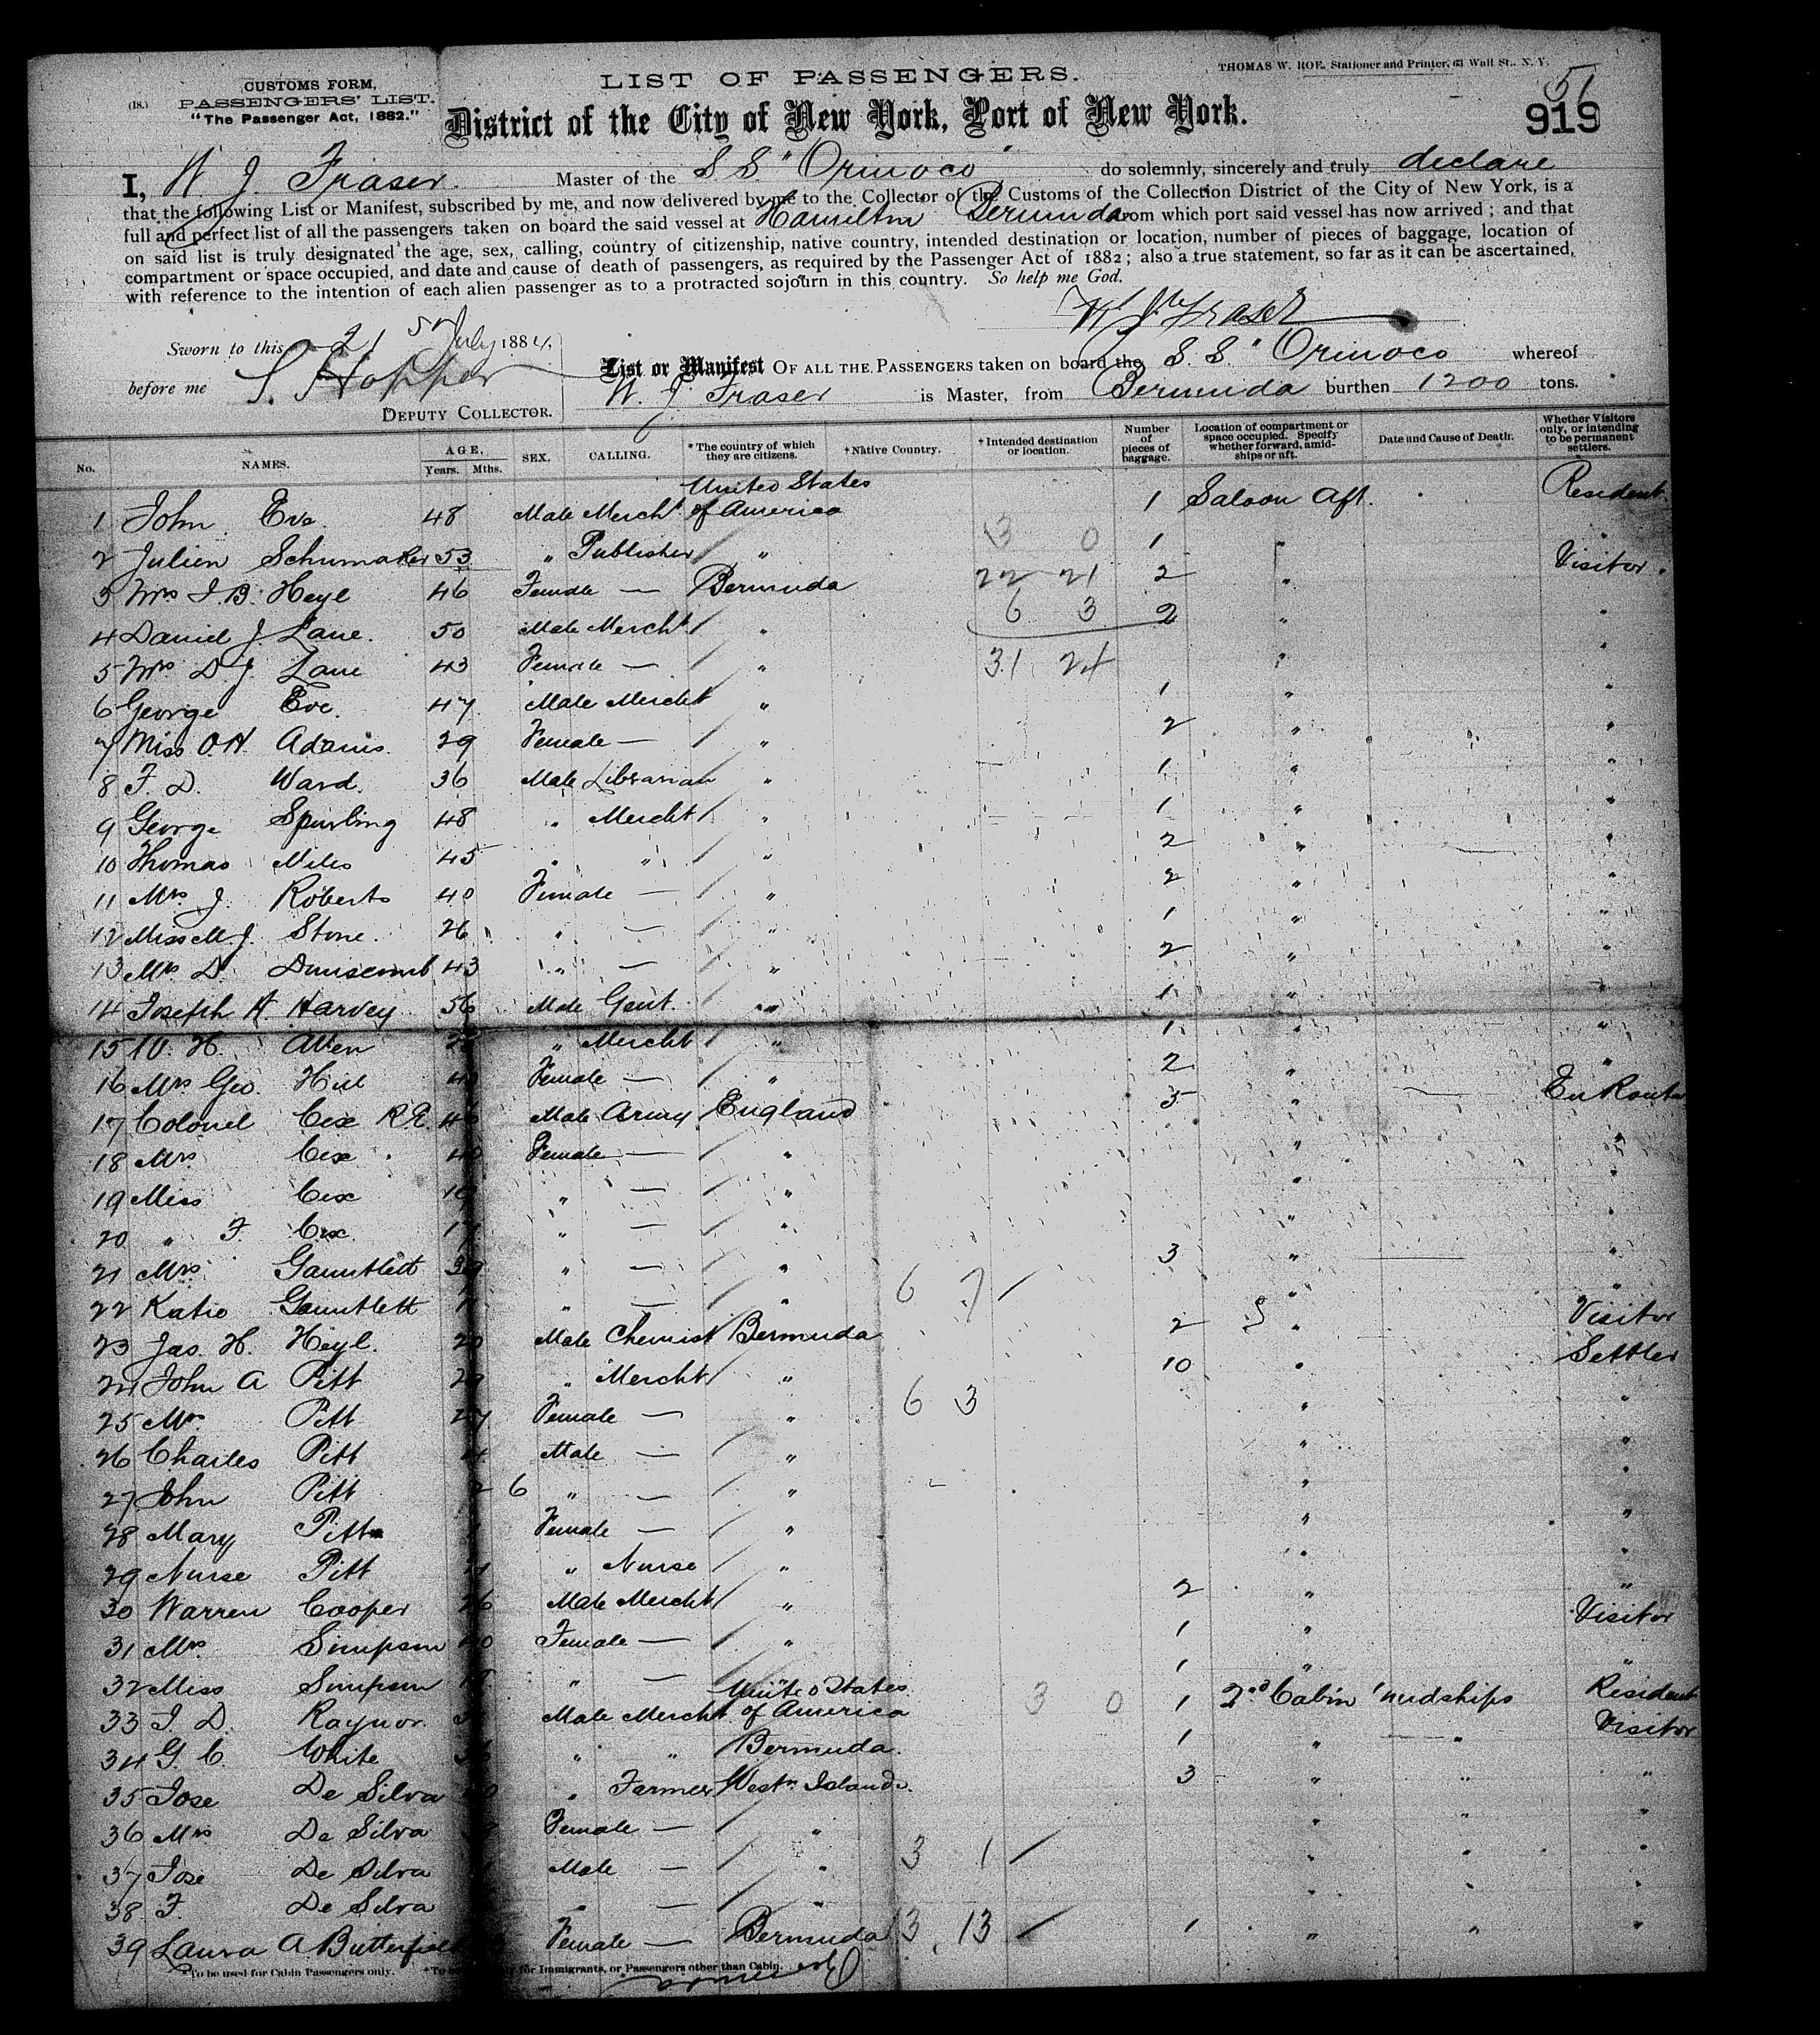 CUSTOMS FORM,
(18.) PASSENGERS' LIST.
"The Passenger Act, 1882."
LIST OF PASSENGERS.
THOMAS W. ROE, Stationer and Printer, 63 Wall St., N. Y.
51
919
District of the City of New York, Port of New York.
I, W J Fraser Master of the S S "Orinoco" do solemnly, sincerely and truly declare
that the following List or Manifest, subscribed by me, and now delivered by me to the Collector of the Customs of the Collection District of the City of New York, is a
full and perfect list of all the passengers taken on board the said vessel at Hamilton Bermuda from which port said vessel has now arrived; and that
on said list is truly designated the age, sex, calling, country of citizenship, native country, intended destination or location, number of pieces of baggage, location of
compartment or space occupied, and date and cause of death of passengers, as required by the Passenger Act of 1882; also a true statement, so far as it can be ascertained,
with reference to the intention of each alien passenger as to a protracted sojourn in this country. So help me God.
W J Fraser
Sworn to this 21 st July 1884,
before me S. Hopper
DEPUTY COLLECTOR.
List or Manifest OF ALL THE PASSENGERS taken on board the S. S. "Orinoco whereof
W. J Fraser is Master, from Bermuda burthen 1200 tons.
No. NAMES. AGE. Years. Mths. SEX. CALLING. *The country of which they are citizens. †Native Country. †Intended destination or location. Number of pieces of baggage. Location of compartment or space occupied. Specify whether forward, amidships or aft. Date and Cause of Death. Whether Visitors only, or intending to be permanent settlers.
1 John Eve 48 Male Mercht United States of America 1 Saloon Aft. Resident
2 Julien Schumaker 53 " Publisher " 13 0 1 " "
3 Mrs J. B. Heyl 46 Female — Bermuda 22 21 2 " Visitor
4 Daniel J Lane. 50 Male Mercht " 6 3 2 " "
5 Mrs D. J. Lane 43 Female — " 31 24 " "
6 George Eve. 47 Male Mercht " 1 " "
7 Miss O. H. Adams. 29 Female — " 2 " "
8 F. D. Ward. 36 Male Librarian " 1 " "
9 George Spurling 48 " Mercht " 1 " "
10 Thomas Miles 45 " " " 2 " "
11 Mrs J. Roberts 40 Female — " 2 " "
12 Miss M. J. Stone. 26 " — " 1 " "
13 Mrs D. Dunscomb 43 " — " 2 " "
14 Joseph H. Harvey 56 Male Gent. " 1 " "
15 W. H. Allen " Mercht " 1 " "
16 Mrs Geo. Hill Female — " 2 " "
17 Colonel Cox R.E. Male Army England 5 " En Route
18 Mrs Cox 40 Female — " " "
19 Miss Cox " — " " "
20 " F. Cox 17 " — " " "
21 Mrs Gauntlett 39 " — " 3 " "
22 Katie Gauntlett " — " 6 7 " "
23 Jas. H. Heyl. 20 Male Chemist Bermuda 2 " Visitor
24 John A Pitt 29 " Mercht " 10 " Settler
25 Mrs Pitt 27 Female — " 6 3 " "
26 Charles Pitt 4 Male — " " "
27 John Pitt 2 6 " — " " "
28 Mary Pitt Female — " " "
29 Nurse Pitt " Nurse " " "
30 Warren Cooper 26 Male Mercht " 2 " "
31 Mrs Simpson Female — " 1 " Visitor
32 Miss Simpson " — " 1 " "
33 J. D. Raynor. Male Mercht United States of America 3 0 1 2nd Cabin 'midships Resident
34 G. C. White " " Bermuda. 1 " " Visitor
35 Jose De Silva " Farmer Westn Islands. 3 " " "
36 Mrs De Silva Female — " " " "
37 Jose De Silva Male — " 3 1 " " "
38 F. De Silva " — " " " "
39 Laura A Butterfield Female — Bermuda 13 13 1 " " "
*To be used for Cabin Passengers only. for Immigrants, or Passengers other than Cabin.